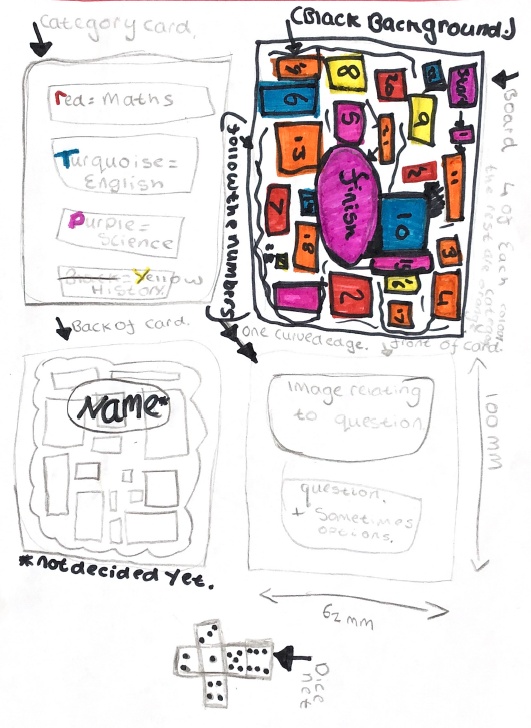 Category card.
(Black Background.)
red = Maths
Turquoise =
English
Purple =
Science
Yellow
History.
(follow the numbers)
finish
Board
4 of Each colour
the rest are orange
8
6
5
9
13
11
7
10
18
3
2
4
17
Back of card.
one curved edge.
front of card.
Name*
*not decided yet.
Image relating
to question
question.
+ Sometimes
options.
100 mm
62 mm
Dice
net